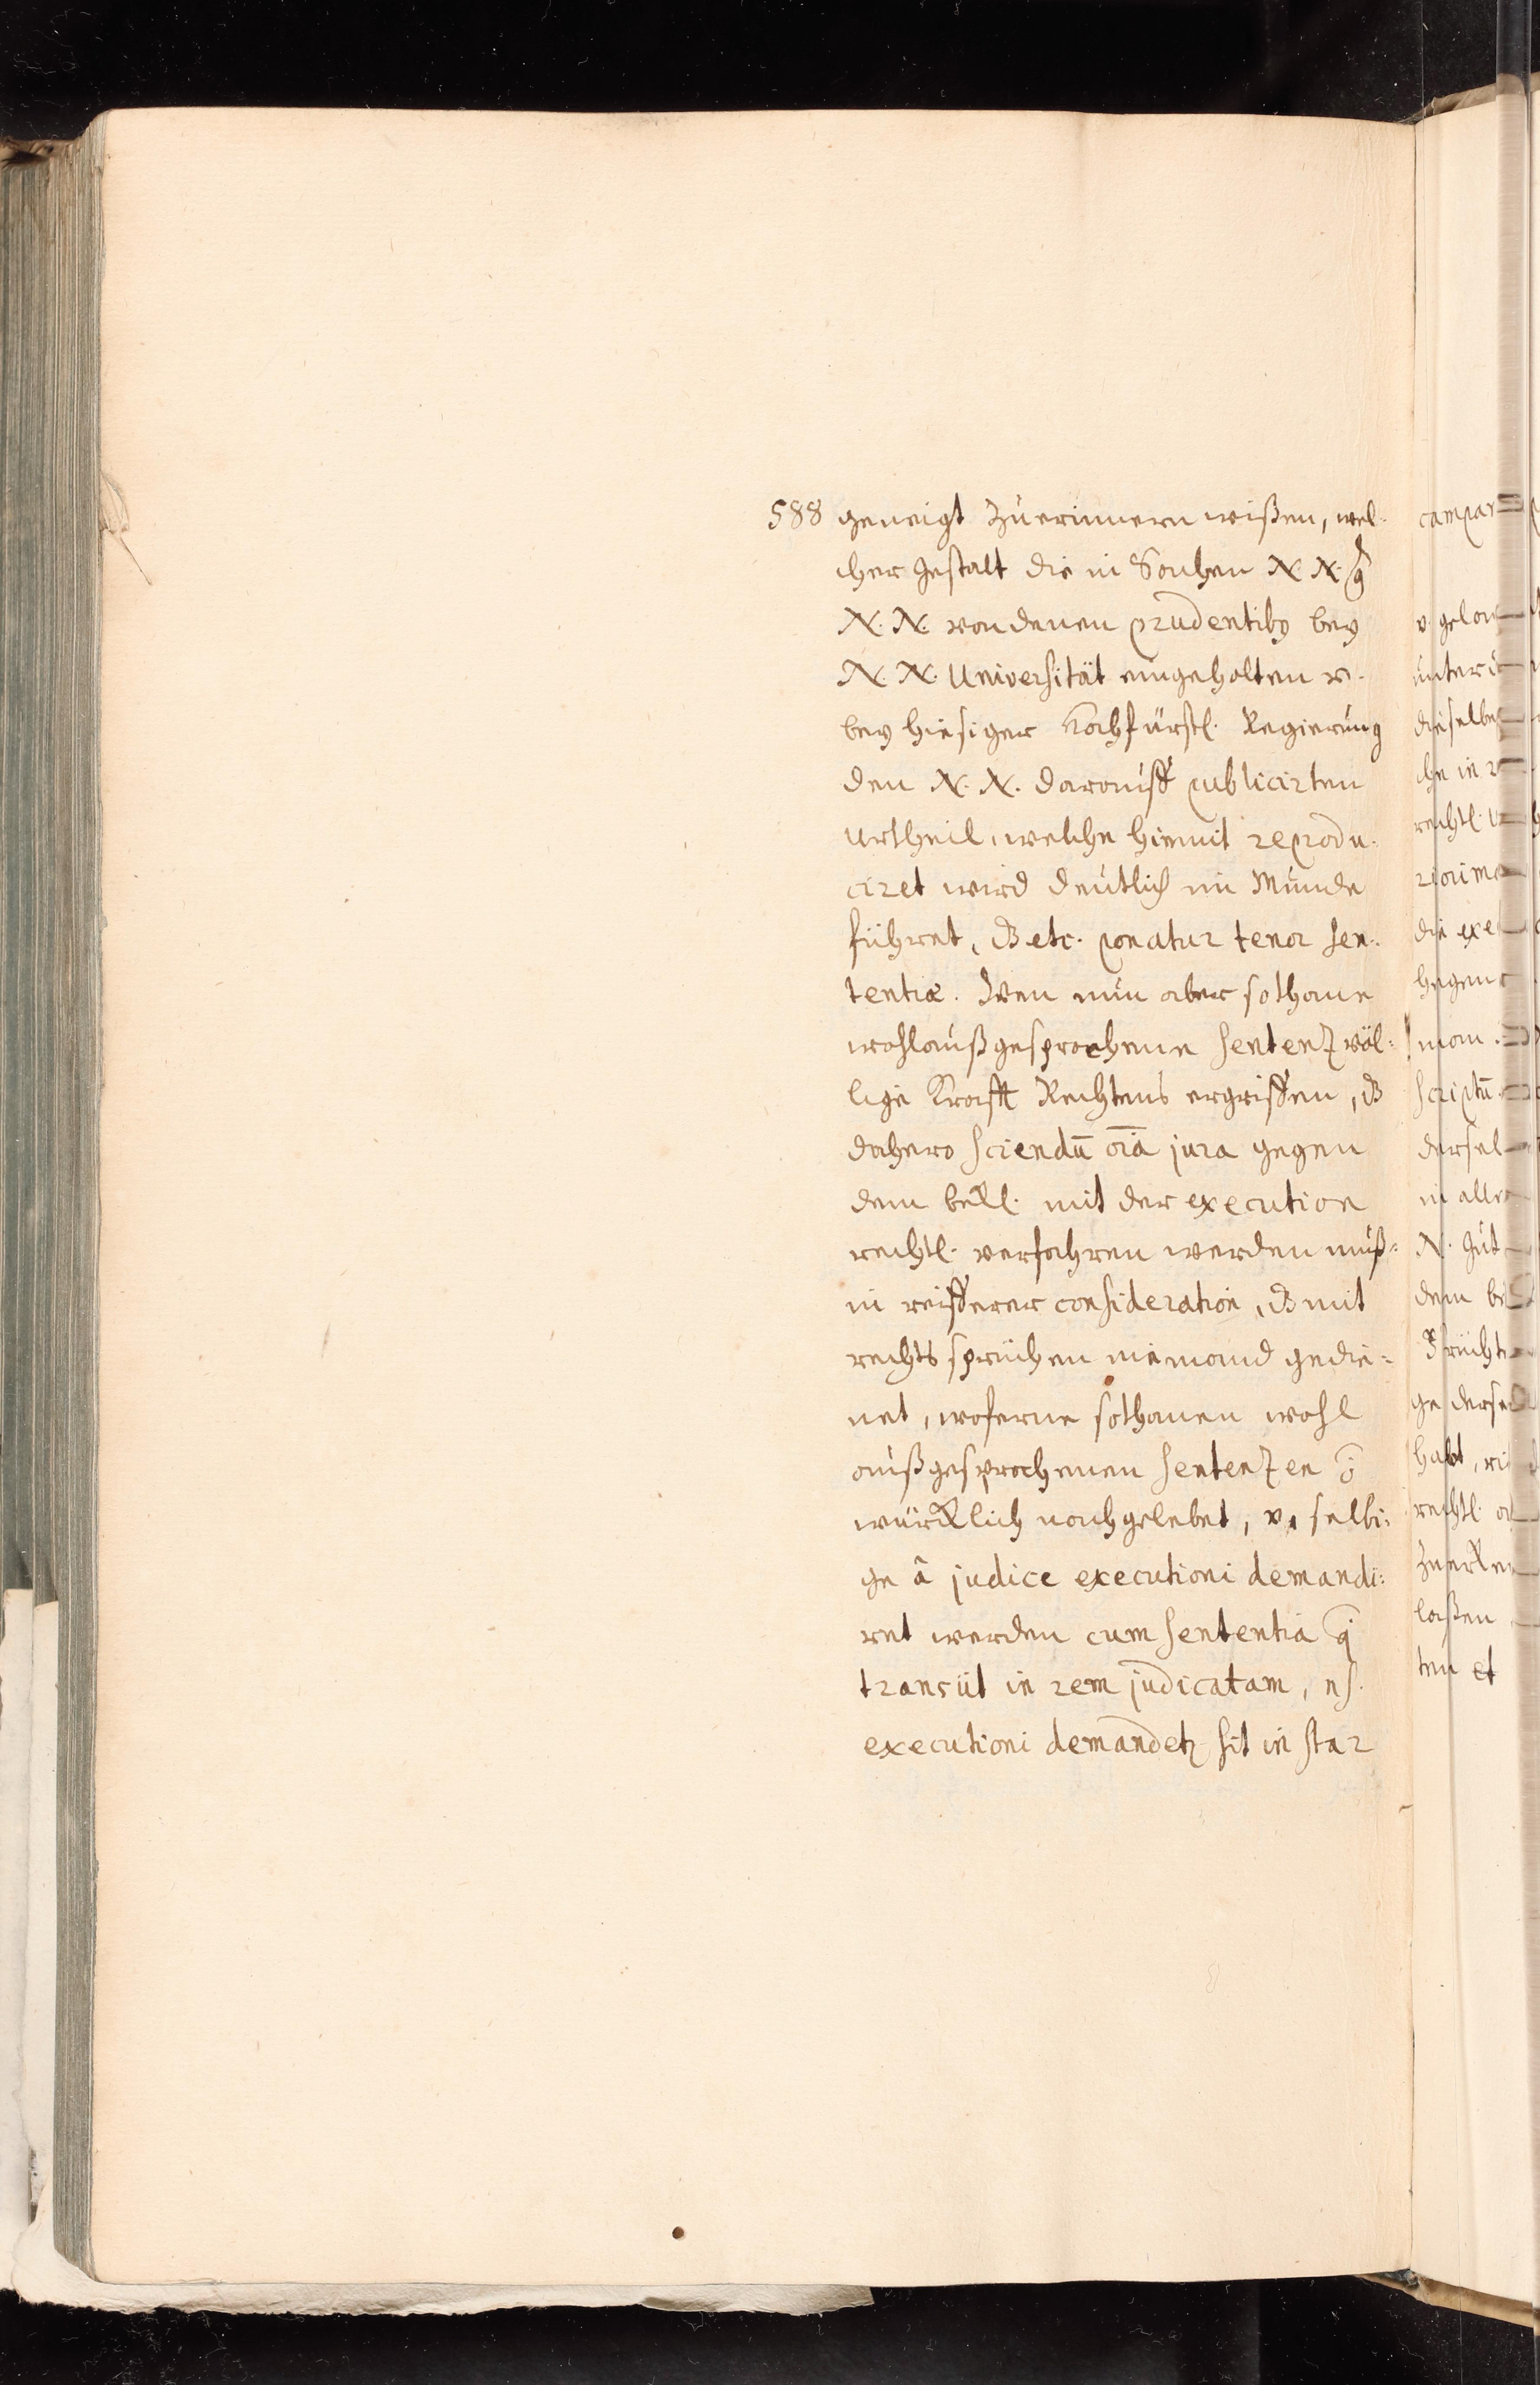 588 geneigt zuerinnern wißen, wel-
cher gestalt die in Sachen N. N. 
N. N. von denen prudentibꝫ bey
N. N. Universität eingeholten v.
bey hiesiger hochfürstl. Regierung
den N. N. darauff publicirten
Urtheil, welche hiemit reprodu-
ciret wird deutlich im Munde
führet, dß etc. ponatur tenor sen-
tentiæ. Wen nun aber sothane
wohlaußgesprochene sententz völ-
lige Krafft Rechtens ergriffen, dß
dahero sciendū oīa jura gegen
dem bekl. mit der execution
rechtl. verfahren werden muß
in reifferer consideration, dß mit
rechts sprüchen niemand gedie-
net, woferne sothanen wohl
außgesprochenen sententzen
würcklich nachgelebet, v. selbi-
ge â judice executioni demandi-
ret werden cum sententia
transiit in rem judicatam, 
executioni demandetꝛ sit instar
campan
v. gelan
unter
dieselbe
che in
rechtl.
die exe
hegen
man
scriptū
dersel
in alle
N. Gut
dem
Früchte
ge derse
habt,
rechtl.
zuerken
laßen
ten et